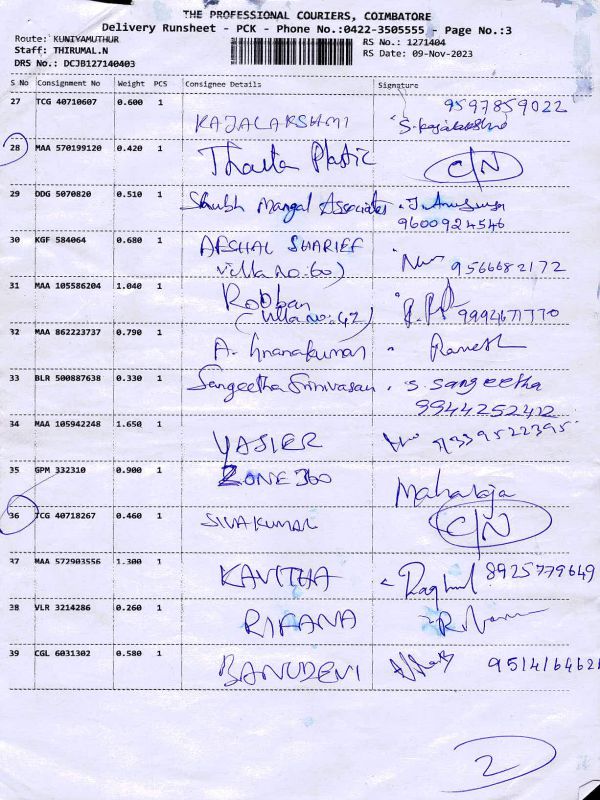 THE PROFESSIONAL COURIERS, COIMBATORE
Delivery Runsheet - PCK - Phone No.:0422-3505555 - Page No.:3
Route: KUNIYAMUTHUR
RS No.: 1271404
Staff: THIRUMAL.N
RS Date: 09-Nov-2023
DRS No.: DCJB127140403
S No Consignment No Weight PCS Consignee Details Signature
27 TCG 40710607 0.600 1 9597859022
KAJALAKSHMI
28 MAA 570199120 0.420 1 Plastic C/N
29 DDG 5070820 0.510 1 Shubh Mangal Associates
9600924546
30 KGF 584064 0.680 1 AFSHAL SHARIEF
Villa no:60) 9566682172
31 MAA 105586204 1.040 1 Robban
(Villa no: 42)
32 MAA 862223737 0.790 1
A. Ramesh
33 BLR 500887638 0.330 1 Sangeetha Srinivasan S. Sangeetha
9944252412
34 MAA 105942248 1.650 1
YASIER
35 GPM 332310 0.900 1 ZONE 360
Maharaja
36 TCG 40718267 0.460 1 SIVAKUMAR C/N
37 MAA 572903556 1.300 1 KAVITHA Raghul 8925779649
38 VLR 3214286 0.260 1 RIFANA
39 CGL 6031302 0.580 1 BANUDEVI
2